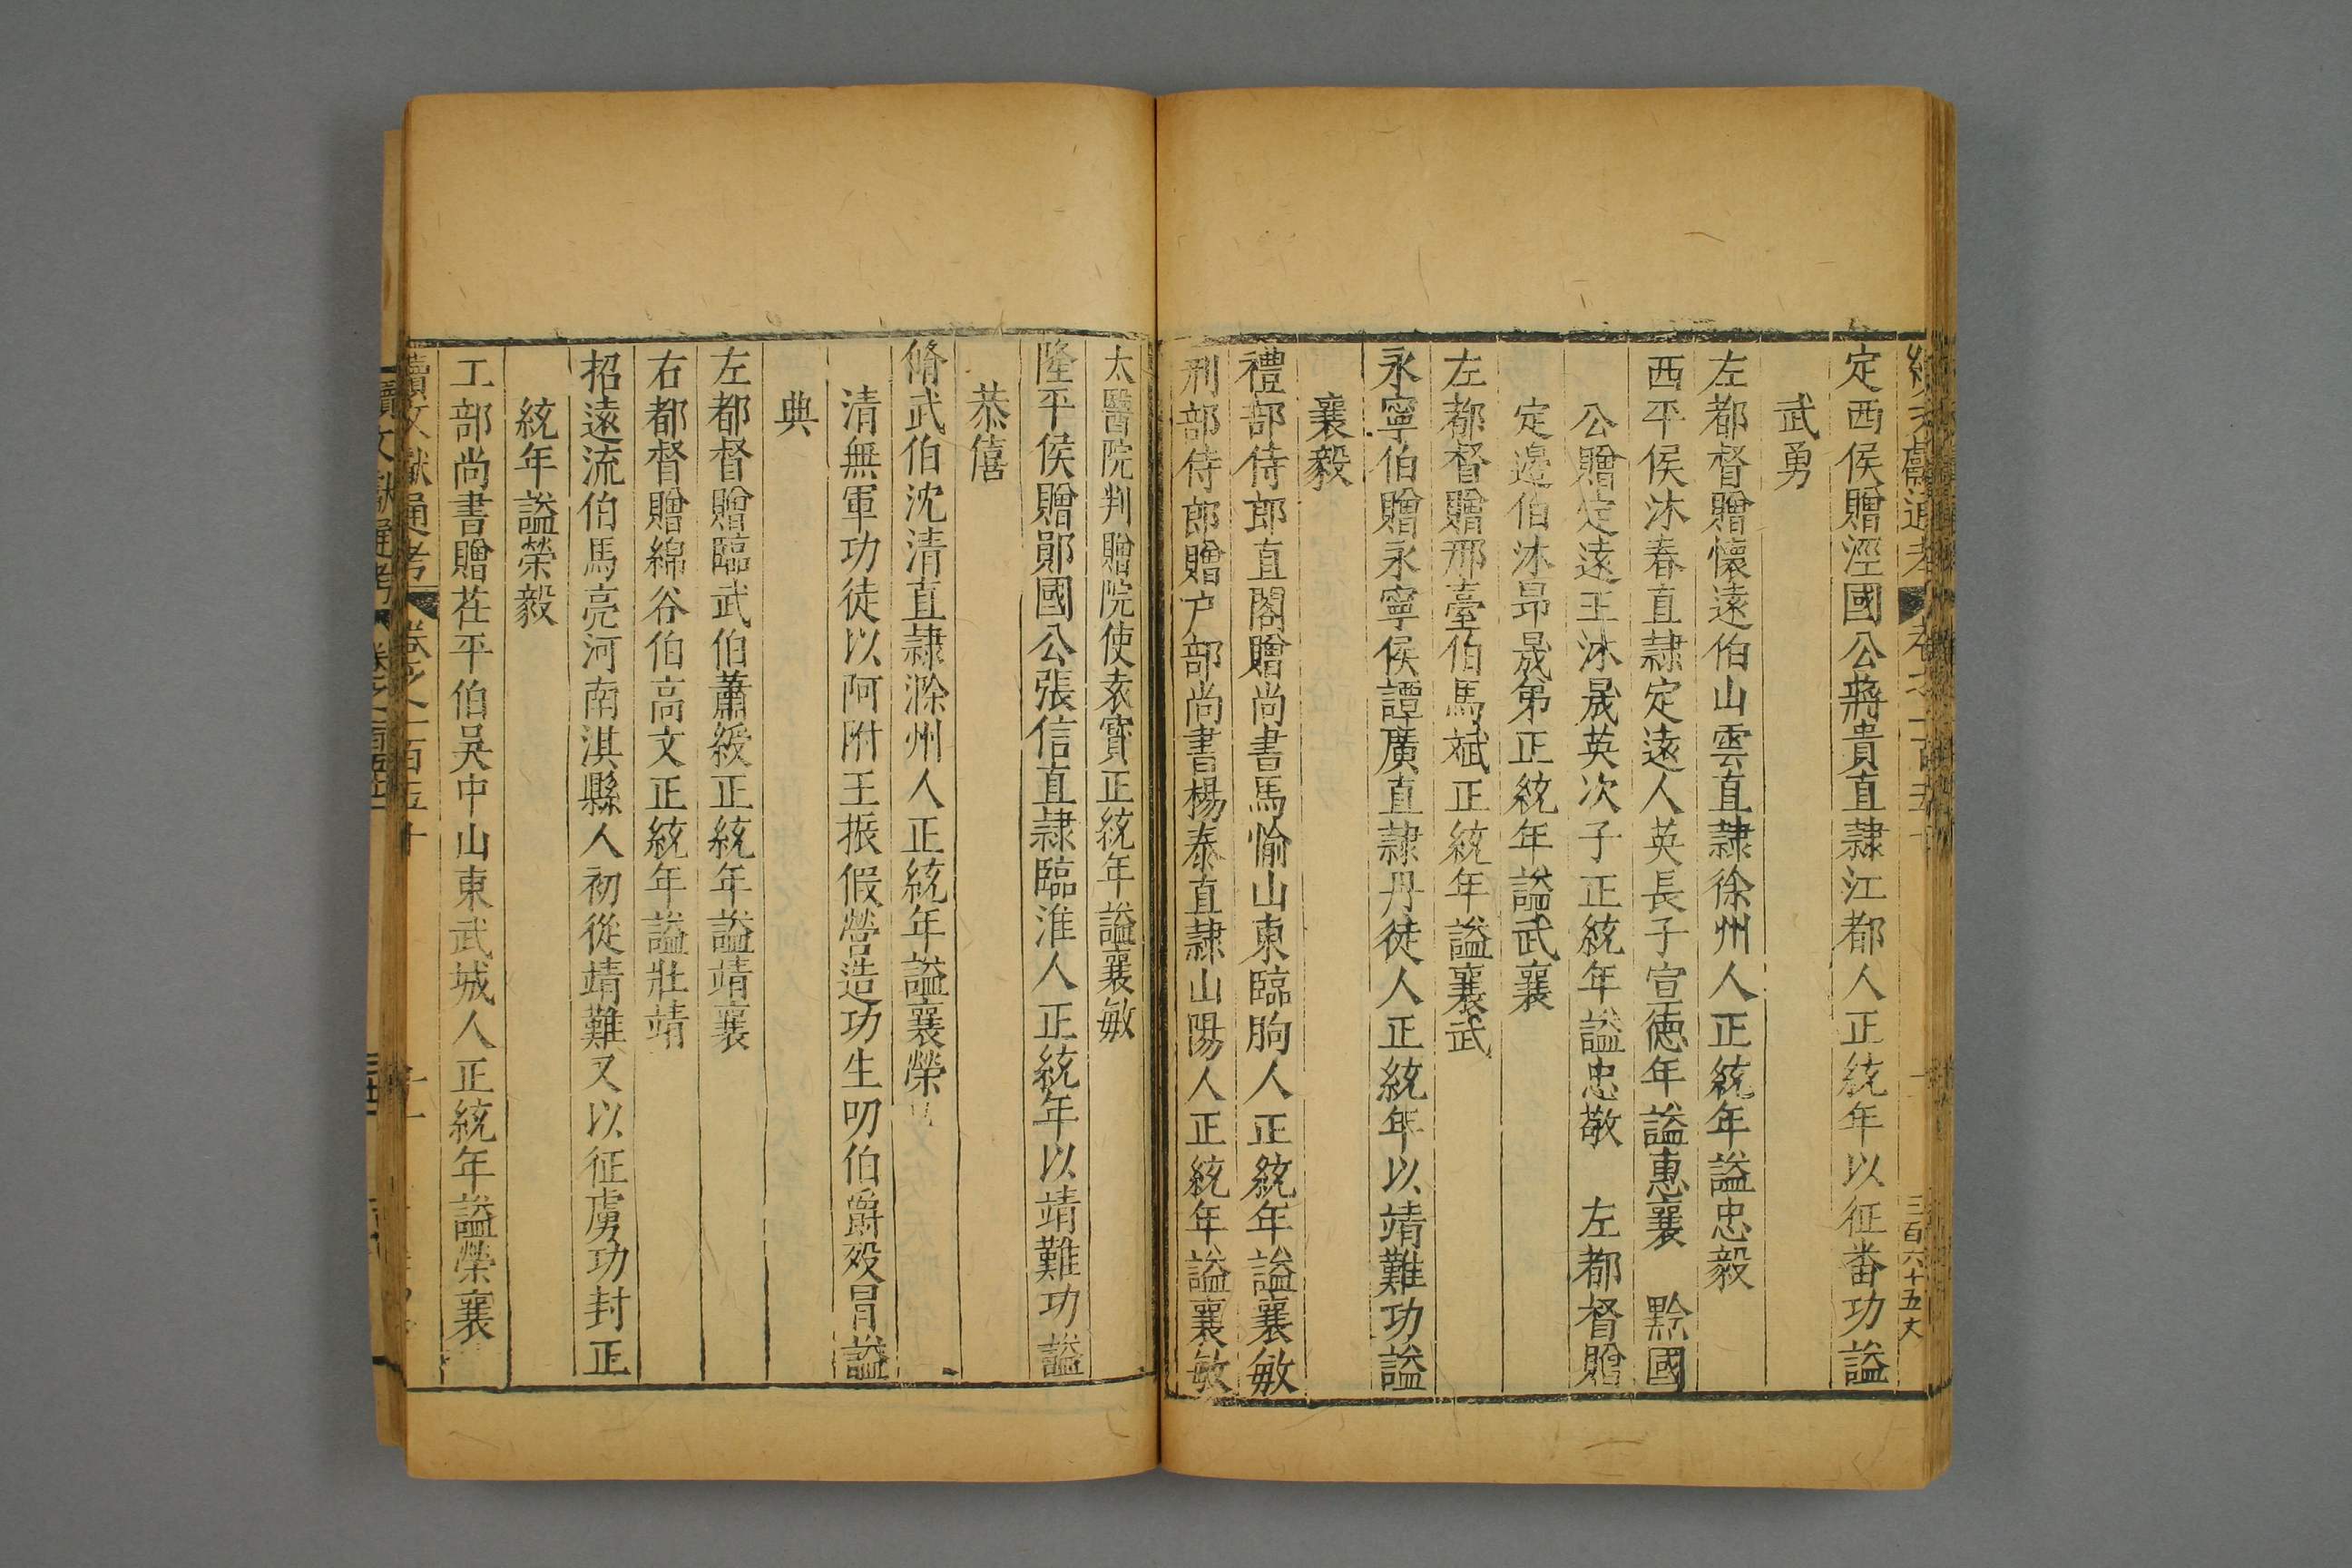 定西侯贈涇國公蔣貴直隸江都人正統年以征番功謚
武勇
左都督贈懷遠伯山雲直隸徐州人正統年謚忠毅
西平侯沐春直隸定遠人英長子宣德年謚惠襄　黔國
公贈定遠王沐晟英次子正統年謚忠敬　左都督贈
定邊伯沐昂晟弟正統年謚武襄
左都督贈邢臺伯馬斌正統年謚襄武
永寧伯贈永寧侯譚廣直隸丹徒人正統年以靖難功謚
襄毅
禮部侍郎直閣贈尚書馬愉山東臨朐人正統年謚襄敏
刑部侍郎贈户部尚書楊泰直隸山陽人正統年謚襄敏
太醫院判贈院使袁寳正統年謚襄敏
隆平侯贈鄖國公張信直隸臨淮人正統年以靖難功謚
恭僖
脩武伯沈清直隸滁州人正統年謚襄榮
清無軍功徒以阿附王振假營造功生叨伯爵歿冒謚
典
左都督贈臨武伯蕭綬正統年謚靖襄
右都督贈綿谷伯高文正統年謚壯靖
招遠流伯馬亮河南淇縣人初從靖難又以征虜功封正
統年謚榮毅
工部尚書贈茌平伯吳中山東武城人正統年謚榮襄
續文獻通考　卷之一百五十